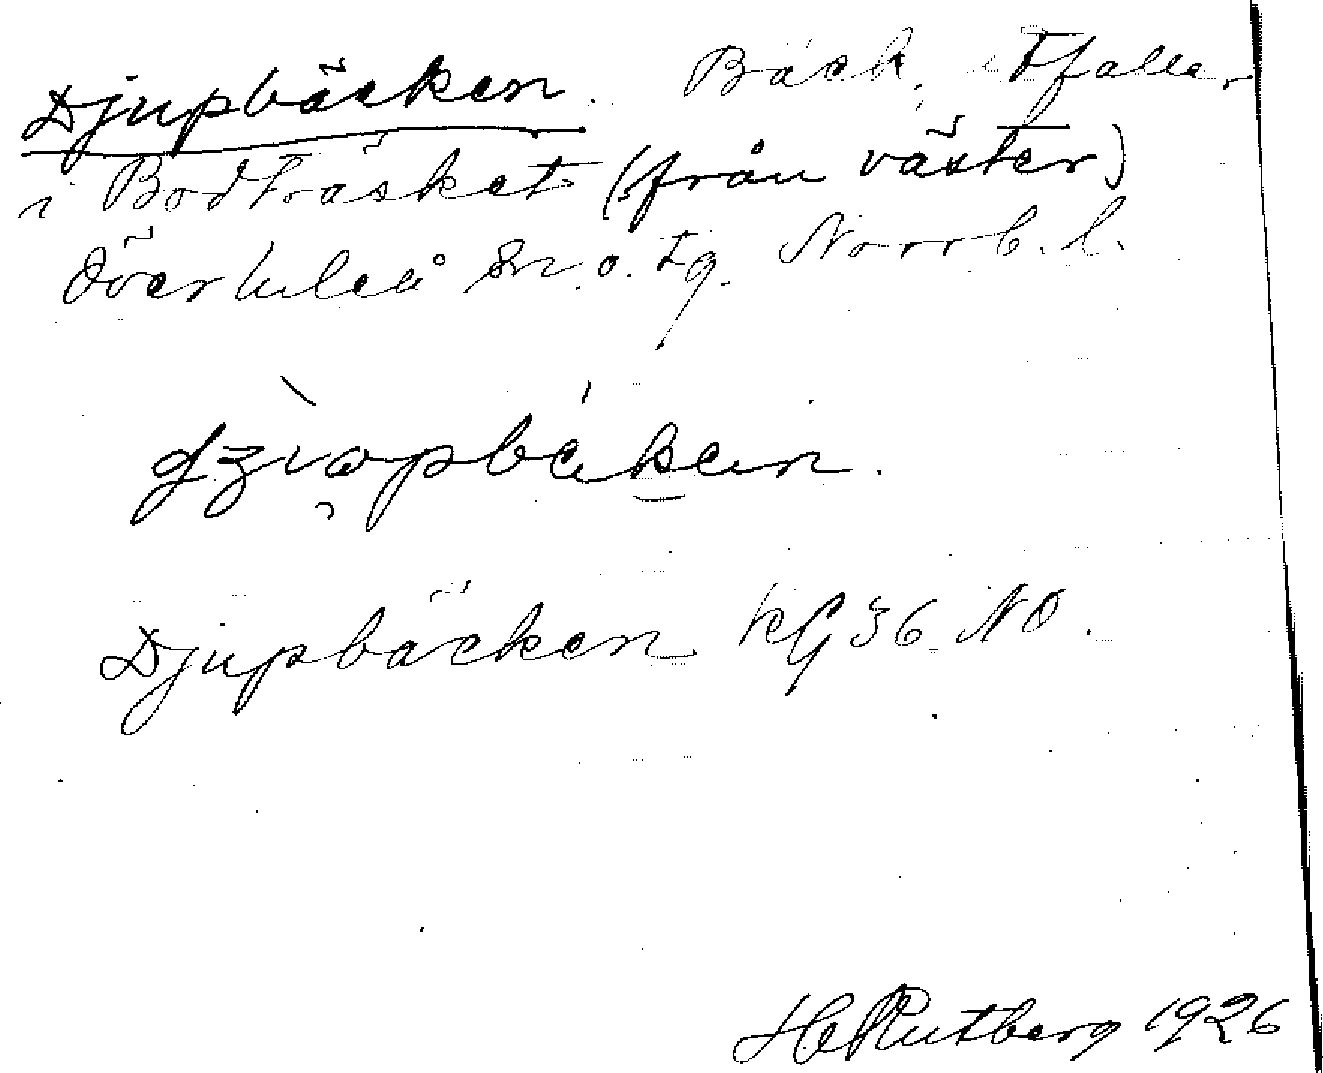 Djupbäcken. Bäck, utfaller
i Bodträsket (från väster)
Överluleå sn. o. tg. Norrb. l.
Djupbäcken KG 36 NO.
H Rutberg 1926